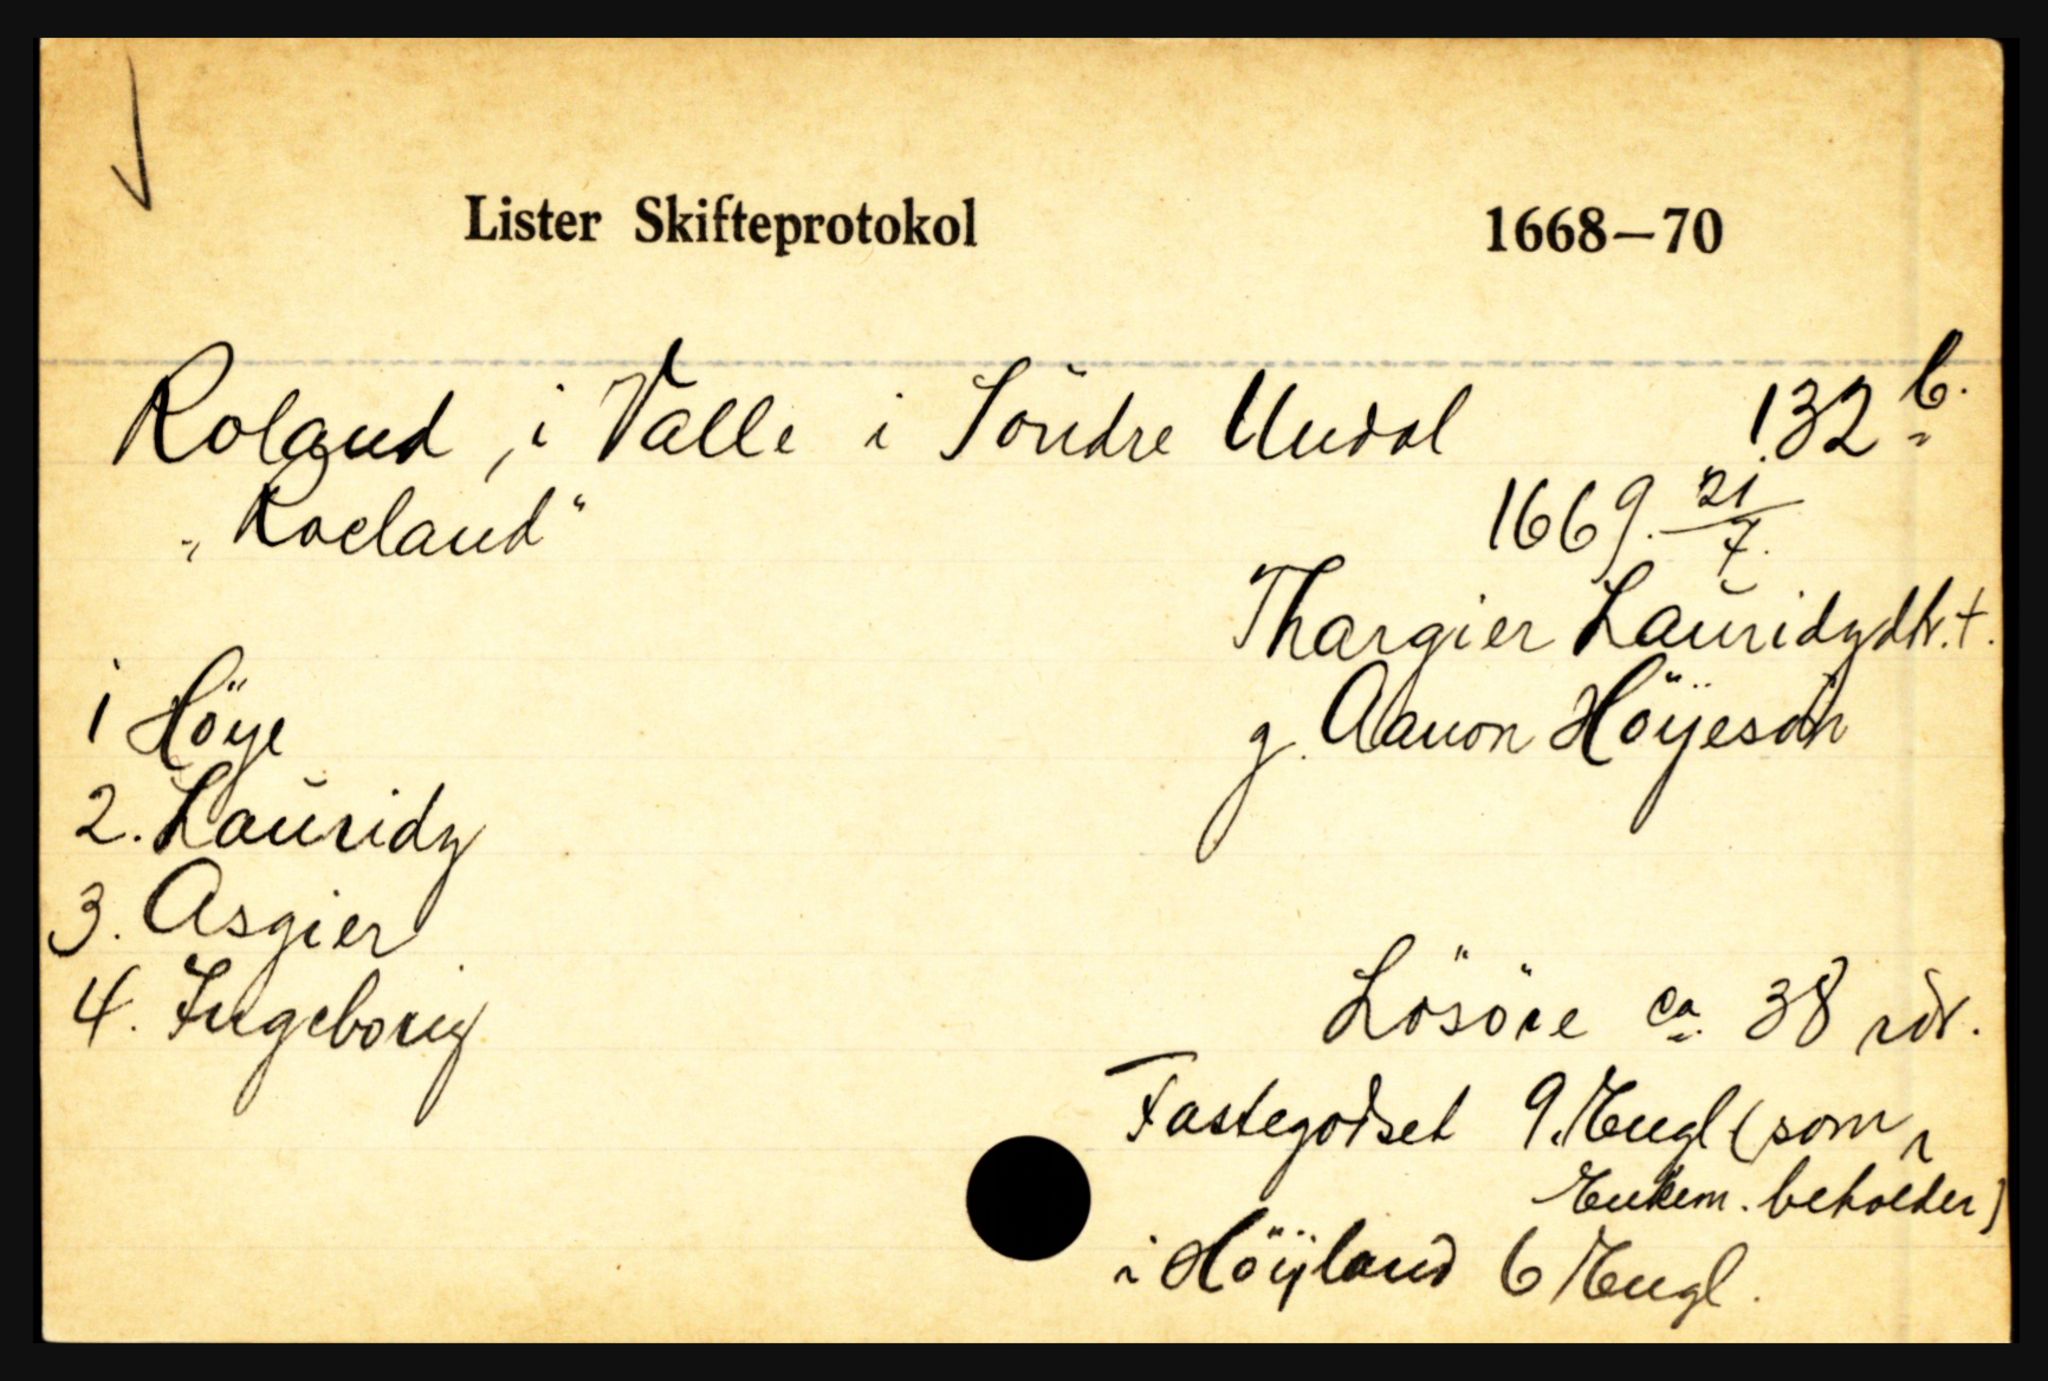 Lister Skifteprotokol 1668—70
Roland, i Valle i Söndre Undal 132 b.
„Roeland“ 1669. 21/7.
Thargier Lauridzdtr. +.
1 Höye g. Aanon Höÿesön
2. Lauridz
3. Asgier
4. Ingeborig
Lösöre ca. 38 rdr.
Fastegodset 9. Engl (som
Enkem. beholder)
i Höÿland 6 Engl.